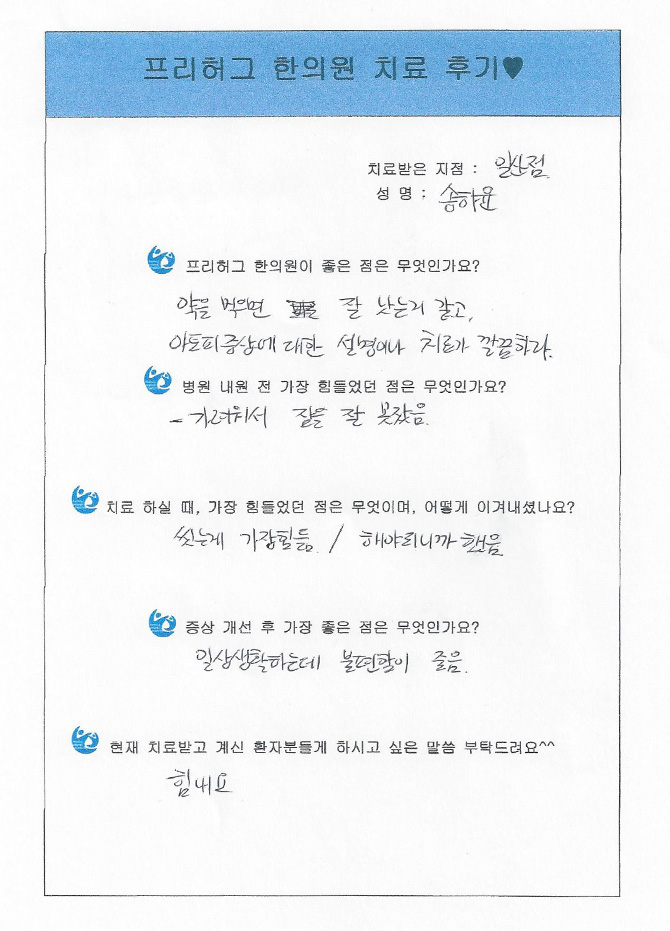 프리허그 한의원 치료 후기♥
치료받은 지점 : 일산점
성 명 : 송하윤
프리허그 한의원이 좋은 점은 무엇인가요?
약을 먹으면 잘 낫는거 같고,
아토피증상에 대한 설명이나 치료가 깔끔하다.
병원 내원 전 가장 힘들었던 점은 무엇인가요?
- 가려워서 잠을 잘 못잤음.
치료 하실 때, 가장 힘들었던 점은 무엇이며, 어떻게 이겨내셨나요?
씻는게 가장힘듬. / 해야되니까 했음
증상 개선 후 가장 좋은 점은 무엇인가요?
일상생활하는데 불편함이 줄음.
현재 치료받고 계신 환자분들게 하시고 싶은 말씀 부탁드려요^^
힘내요